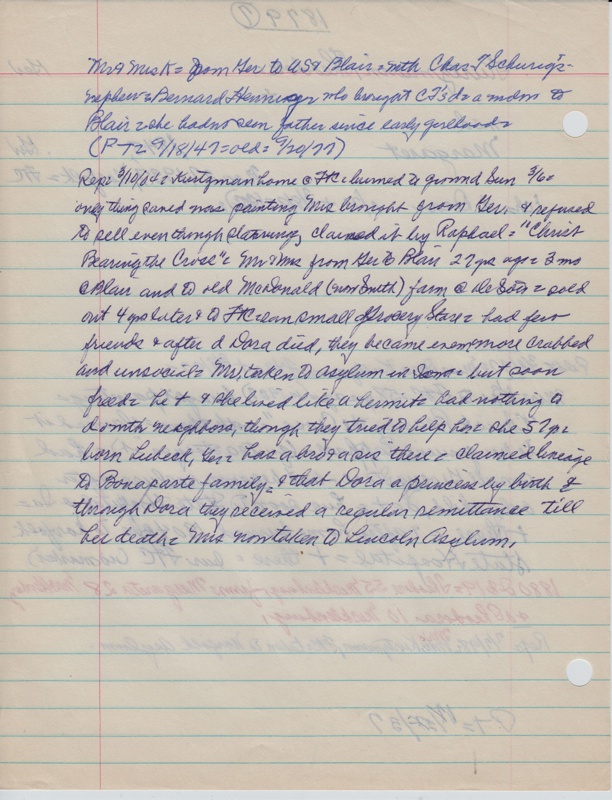 Mr & Mrs K = from Ger to US & Blair = with Chas T Schurig's =
nephew = Bernard Henninger who brought CT's d = a mdm to
Blair = she had not seen father since early girlhood =
(P-T = 9/18/47 = old = 9/20/77)
Rep = 3/10/04 = Kurtzman home @ FC = burned to ground Sun 3/6 =
everything saved now painting Mrs brought from Ger & refused
to sell even though starving, claimed it by Raphael = "Christ
Bearing the Cross" = Mr & Mrs from Ger to Blair 27 yrs ago = 3 mo
@ Blair and to old McDonald (now Smith) farm @ De Soto = sold
out 4 yrs later & to FC = ran small Grocery Store = had few
friends & after d Dora died, they became even more crabbed
and unsocial = Mr, taken to asylum in = but soon
freed = he + & she lived like a hermit = had nothing to
do with neighbors, though they tried to help her = she 57 =
born Lubeck, Ger = has a bro & a sis there = claimed lineage
to Bonaparte family = & that Dora a princess by birth &
through Dora they received a regular remittance till
her death = Mrs now taken to Lincoln Asylum,